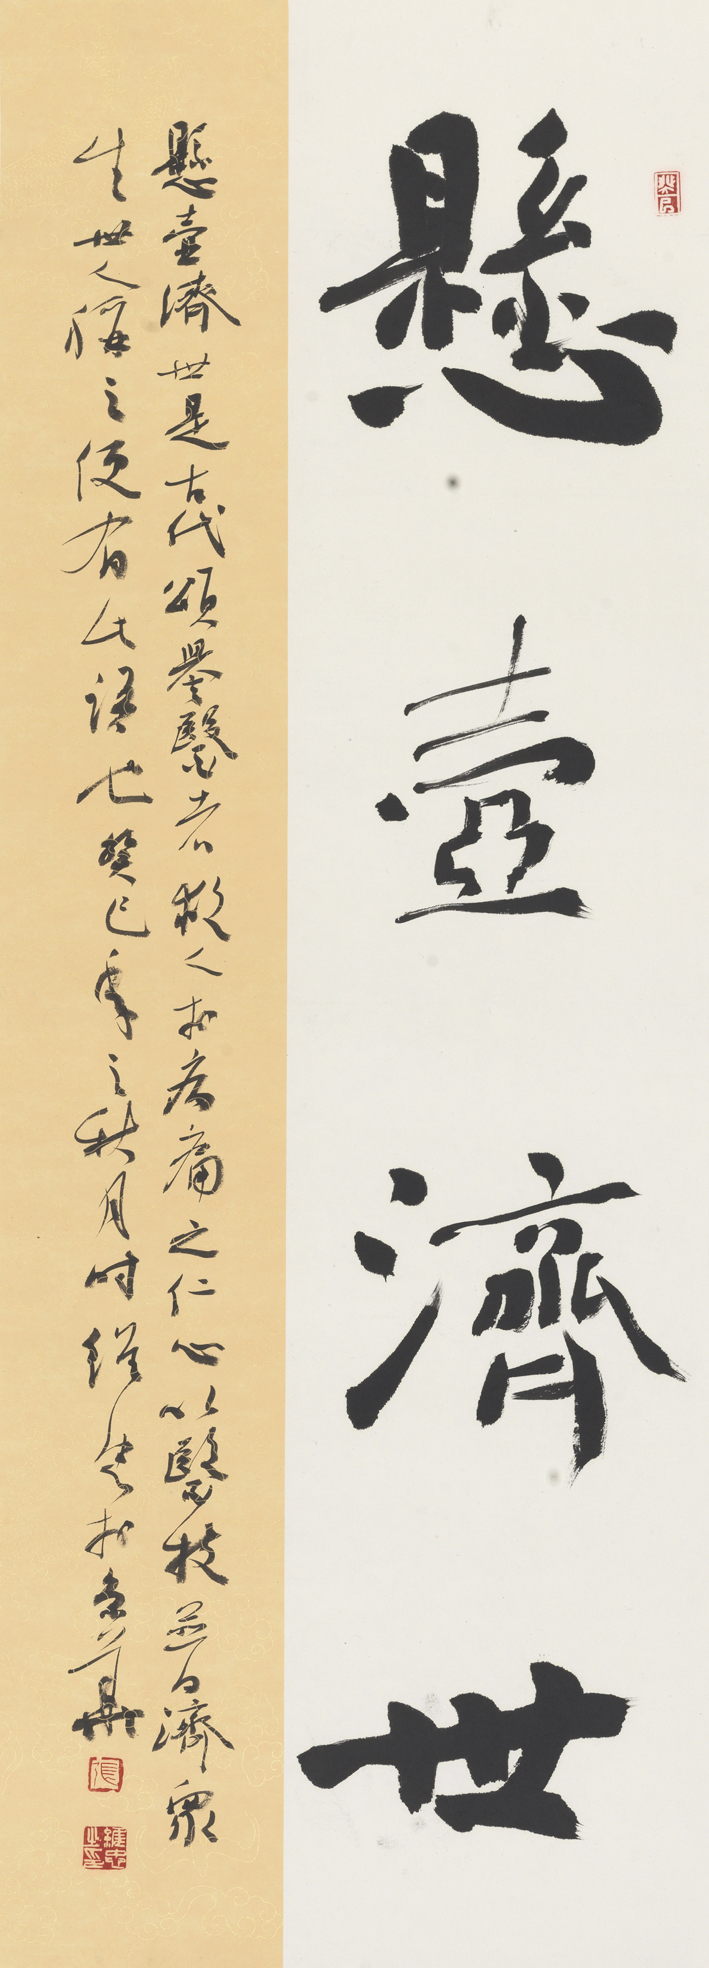 懸壺濟世
懸壺濟世是古代頌譽醫者救人於病痛之仁心以醫技普濟眾
生世人稱之便有此語也癸巳年之秋月時維忠於京華
維忠之印